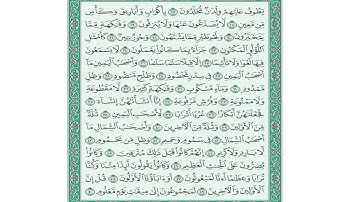 يَطُوفُ عَلَيْهِمْ وِلْدَٰنٌ مُّخَلَّدُونَ بِأَكْوَابٍ وَأَبَارِيقَ وَكَأْسٍ
مِّن مَّعِينٍ لَّا يُصَدَّعُونَ عَنْهَا وَلَا يُنزِفُونَ وَفَٰكِهَةٍ مِّمَّا
يَتَخَيَّرُونَ وَلَحْمِ طَيْرٍ مِّمَّا يَشْتَهُونَ وَحُورٌ عِينٌ كَأَمْثَٰلِ
ٱللُّؤْلُؤِ ٱلْمَكْنُونِ جَزَآءًۢ بِمَا كَانُوا۟ يَعْمَلُونَ لَا يَسْمَعُونَ
فِيهَا لَغْوًا وَلَا تَأْثِيمًا إِلَّا قِيلًا سَلَٰمًا سَلَٰمًا وَأَصْحَٰبُ ٱلْيَمِينِ مَآ
أَصْحَٰبُ ٱلْيَمِينِ فِى سِدْرٍ مَّخْضُودٍ وَطَلْحٍ مَّنضُودٍ وَظِلٍّ
مَّمْدُودٍ وَمَآءٍ مَّسْكُوبٍ وَفَٰكِهَةٍ كَثِيرَةٍ لَّا مَقْطُوعَةٍ
وَلَا مَمْنُوعَةٍ وَفُرُشٍ مَّرْفُوعَةٍ إِنَّآ أَنشَأْنَٰهُنَّ إِنشَآءً
فَجَعَلْنَٰهُنَّ أَبْكَارًا عُرُبًا أَتْرَابًا لِّأَصْحَٰبِ ٱلْيَمِينِ ثُلَّةٌ
مِّنَ ٱلْأَوَّلِينَ وَثُلَّةٌ مِّنَ ٱلْءَاخِرِينَ وَأَصْحَٰبُ ٱلشِّمَالِ مَآ
أَصْحَٰبُ ٱلشِّمَالِ فِى سَمُومٍ وَحَمِيمٍ وَظِلٍّ مِّن يَحْمُومٍ
لَّا بَارِدٍ وَلَا كَرِيمٍ إِنَّهُمْ كَانُوا۟ قَبْلَ ذَٰلِكَ مُتْرَفِينَ وَكَانُوا۟
يُصِرُّونَ عَلَى ٱلْحِنثِ ٱلْعَظِيمِ وَكَانُوا۟ يَقُولُونَ أَئِذَا مِتْنَا وَكُنَّا
تُرَابًا وَعِظَٰمًا أَءِنَّا لَمَبْعُوثُونَ أَوَءَابَآؤُنَا ٱلْأَوَّلُونَ قُلْ إِنَّ
ٱلْأَوَّلِينَ وَٱلْءَاخِرِينَ لَمَجْمُوعُونَ إِلَىٰ مِيقَٰتِ يَوْمٍ مَّعْلُومٍ